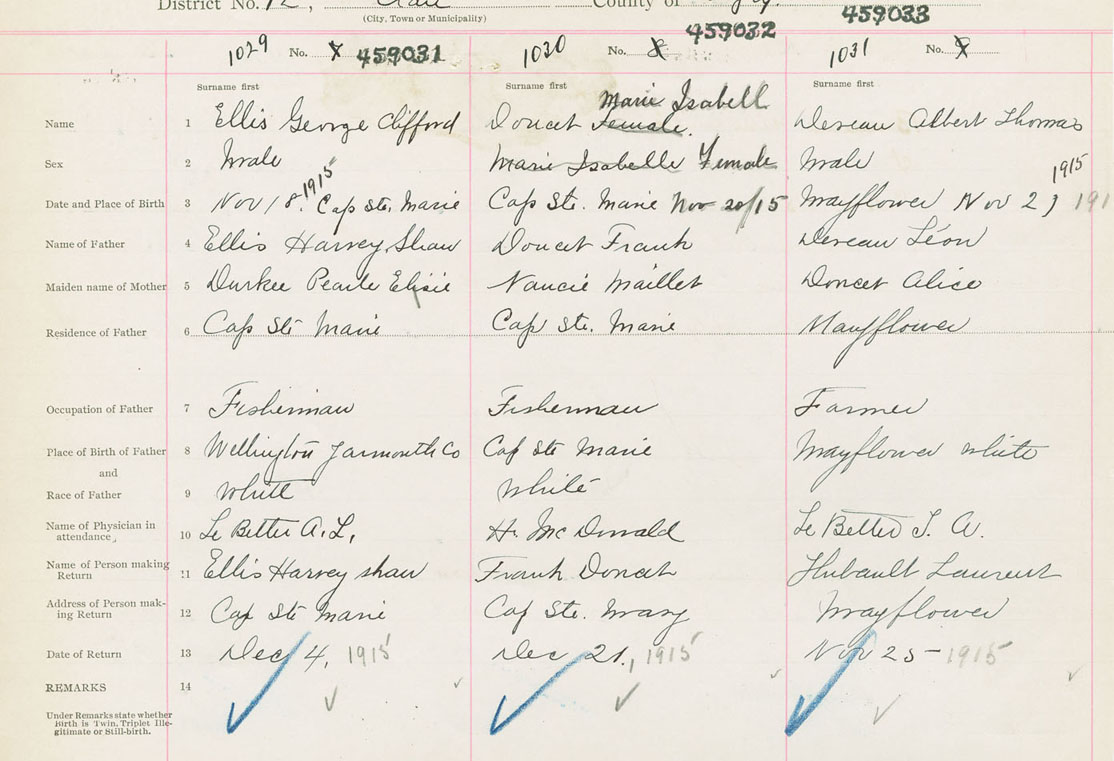 District No. 12, Clare County of
(City, Town or Municipality)
1029 No. 7 459031 1030 No. 8 459032 1031 No. 9 459033
Surname first Surname first Surname first
Marie Isabell
Name 1 Ellis George Clifford Doucet Female. Deveau Albert Thomas
Sex 2 Male Marie Isabelle Female Male
1915 1915
Date and Place of Birth 3 Nov 18. Cap Ste. Marie Cap Ste. Marie Nov 20/15 Mayflower Nov 2) 191
Name of Father 4 Ellis Harvey Shaw Doucet Frank Deveau Léon
Maiden name of Mother 5 Durkee Pearle Elisie Naucie Maillet Doucet Alice
Residence of Father 6 Cap Ste Marie Cap Ste. Marie Mayflower
Occupation of Father 7 Fisherman Fisherman Farmer
Place of Birth of Father 8 Wellington Yarmouth Co Cap Ste Marie Mayflower white
and
Race of Father 9 White White
Name of Physician in
attendance 10 Le Better A. L. H. McDonald Le Better J. A.
Name of Person making
Return 11 Ellis Harvey Shaw Frank Doucet Thibault Laurent
Address of Person mak-
ing Return 12 Cap Ste Marie Cap Ste. Mary Mayflower
Date of Return 13 Dec 4, 1915 Dec 21., 1915 Nov 25- 1915
REMARKS 14
Under Remarks state whether
Birth is Twin, Triplet Ille-
gitimate or Still-birth.